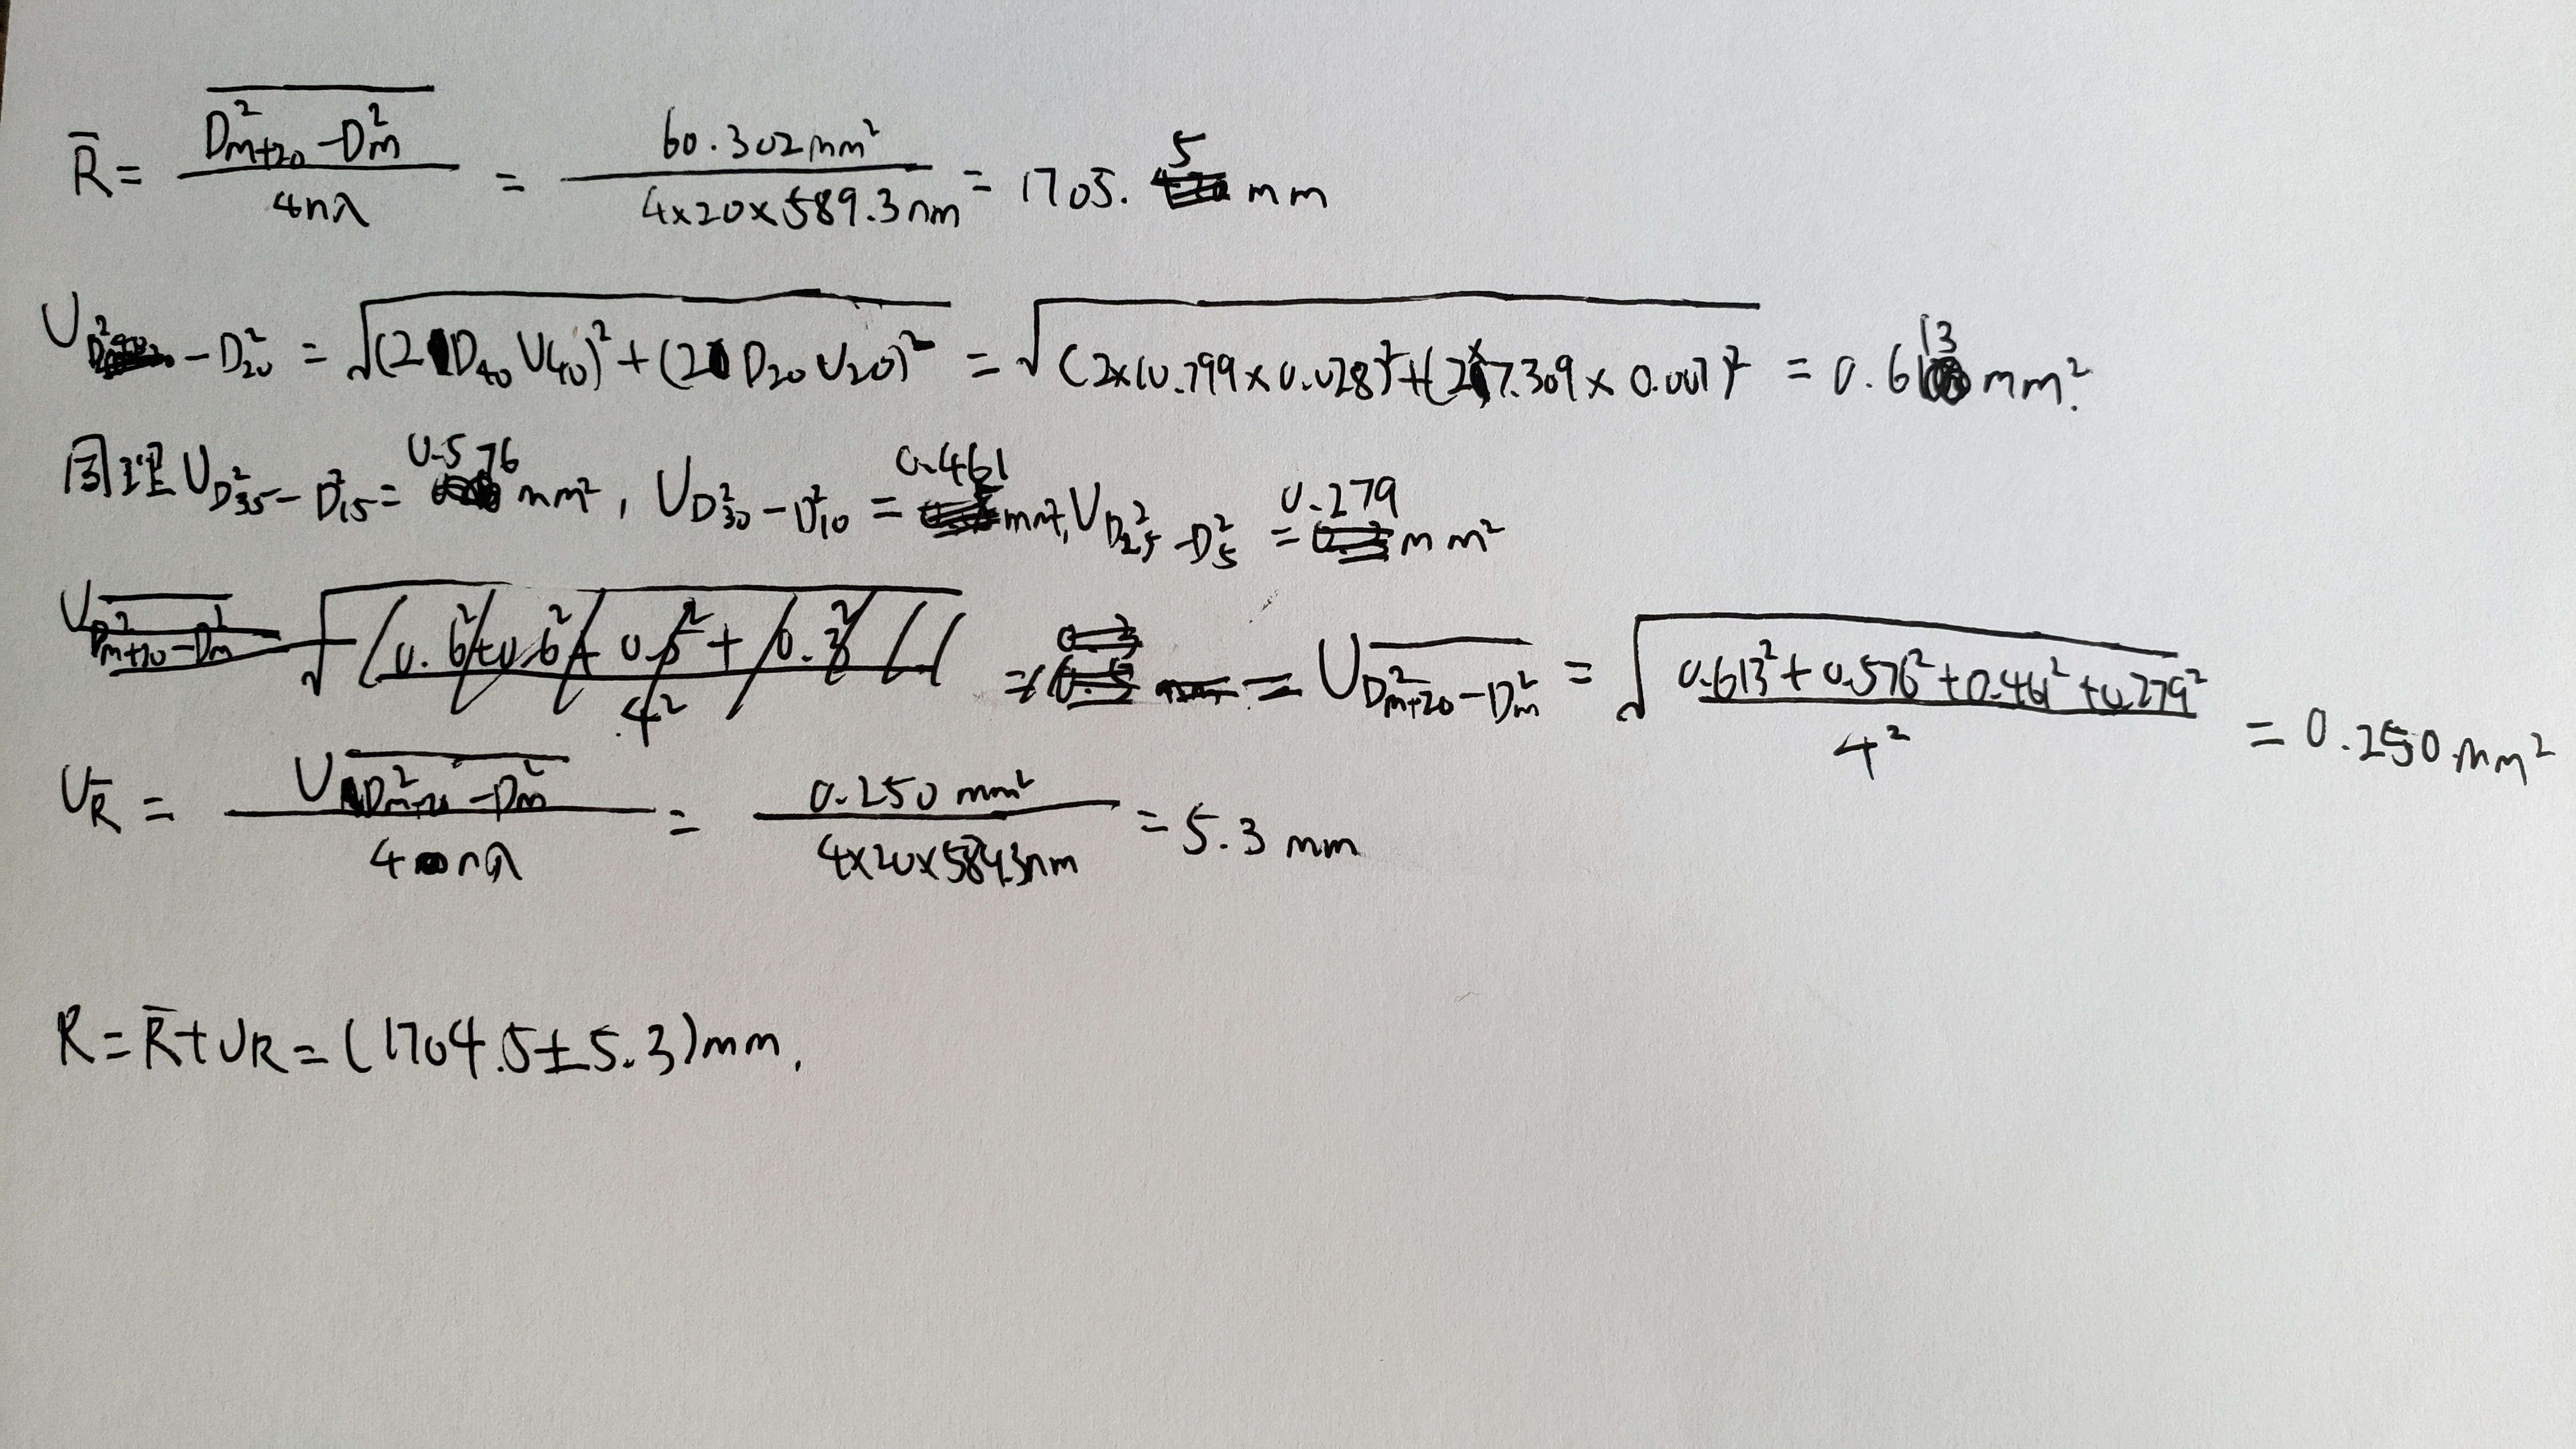 R̄ = \overline{D²ₘ₊₂₀ - D²ₘ} / 4nλ = 60.302mm² / 4×20×589.3nm = 1705.5mm
- D²₂₀ = √((2D₄₀U₄₀)² + (2D₂₀U₂₀)²) = √((2×10.799×0.028)² + (2×7.309×0.007)²) = 0.613mm²
同理 U D²₃₅ - D²₁₅ = 0.576mm², U D²₃₀ - D²₁₀ = 0.461mm², U D²₂₅ - D²₅ = 0.279mm²
= U \overline{D²ₘ₊₂₀ - D²ₘ} = √((0.613² + 0.576² + 0.461² + 0.279²) / 4²) = 0.250mm²
U R̄ = U \overline{D²ₘ₊₂₀ - D²ₘ} / 4nλ = 0.250mm² / 4×20×589.3nm = 5.3mm
R = R̄ ± U R = (1704.5 ± 5.3)mm.